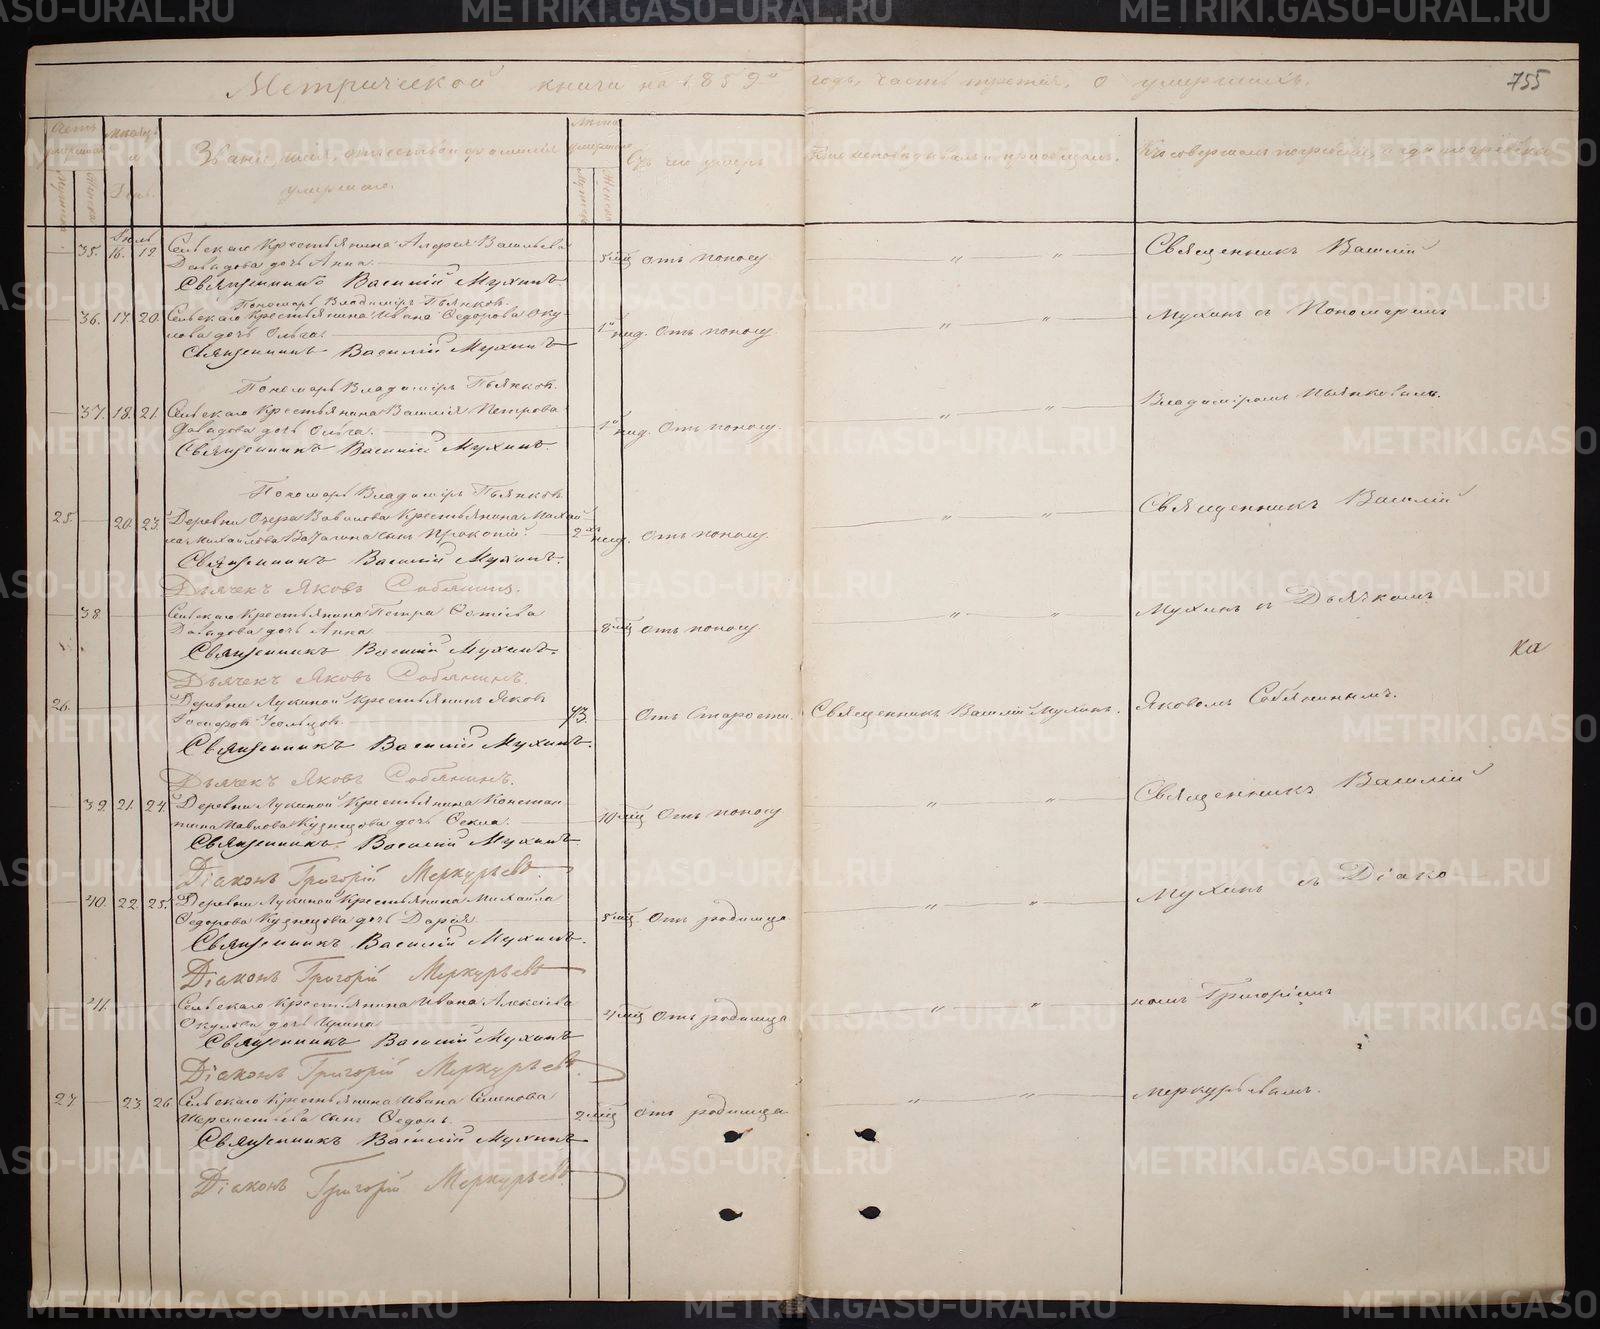 Метрической книги на 1859й годъ, часть третія, о умершихъ.
755
Счетъ умершихъ
Мужеска
Женска
Мѣсяцъ и День.
Званіе, имя, отчество и фамилія умершаго.
Лѣта умершаго
Мужеска
Женска
Отъ чего умеръ
Кто исповѣдывалъ и пріобщалъ.
Кто совершалъ погребеніе и гдѣ погребены
Іюль
35. 16. 19. Сельскаго Крестьянина Андрея Васильева
Давыдова дочь Анна. 5 мѣс Отъ поносу
Священникъ Василій Мухинъ
Пономарь Владиміръ Пьянков.
36. 17. 20. Сельскаго Крестьянина Ивана Ѳедорова Оку-
лова дочь Ольга. 1й нед. Отъ поносу
Священникъ Василій Мухинъ
Пономарь Владиміръ Пьянков.
37. 18. 21. Сельскаго Крестьянина Василія Петрова
Давыдова дочь Ольга. 1й нед. Отъ поносу.
Священникъ Василій Мухинъ.
Пономарь Владиміръ Пьянков
25. 20. 23. Деревни Озера Вавилова Крестьянина Михай-
ла Михайлова сынъ Прокопій. 2хъ нед. Отъ поносу.
Священникъ Василій Мухинъ.
Дьячекъ Яковъ Собянинъ.
38. Сельскаго Крестьянина Петра
Давыдова дочь Анна 8 мѣс Отъ поносу.
Священникъ Василій Мухинъ.
Дьячекъ Яковъ Собянинъ.
26. Деревни Лукиной Крестьянинъ Яковъ
73. Отъ Старости. Священникъ Василій Мухинъ.
Священникъ Василій Мухинъ.
Дьячекъ Яковъ Собянинъ.
39. 21. 24. Деревни Лукиной Крестьянина Констан-
тина Павлова Кузнецова дочь Ѳекла. 10 мѣс Отъ поносу
Священникъ Василій Мухинъ.
Діаконъ Григорій Меркурьевъ.
40. 22. 25. Деревни Лукиной Крестьянина Михайла
Ѳедорова Кузнецова дочь Дарія 5 мѣс. Отъ родимца
Священникъ Василій Мухинъ.
Діаконъ Григорій Меркурьевъ
41. Сельскаго Крестьянина Ивана Алексѣева
Окулова дочь Ирина 4 мѣс Отъ родимца
Священникъ Василій Мухинъ
Діаконъ Григорій Меркурьевъ.
27 23. 26. Сельскаго Крестьянина Ивана Семенова
Шереметьева сынъ 2 мѣс Отъ родимца
Священникъ Василій Мухинъ
Діаконъ Григорій Меркурьевъ
Священникъ Василій
Мухинъ съ Пономаремъ
Владиміромъ Пьянковымъ.
Священникъ Василій
Мухинъ съ Дьячкомъ
Яковомъ Собянинымъ.
Священникъ Василій
Мухинъ съ Діако
номъ Григоріемъ
Меркурьевымъ.
ка
METRIKI.GASO-URAL.RU